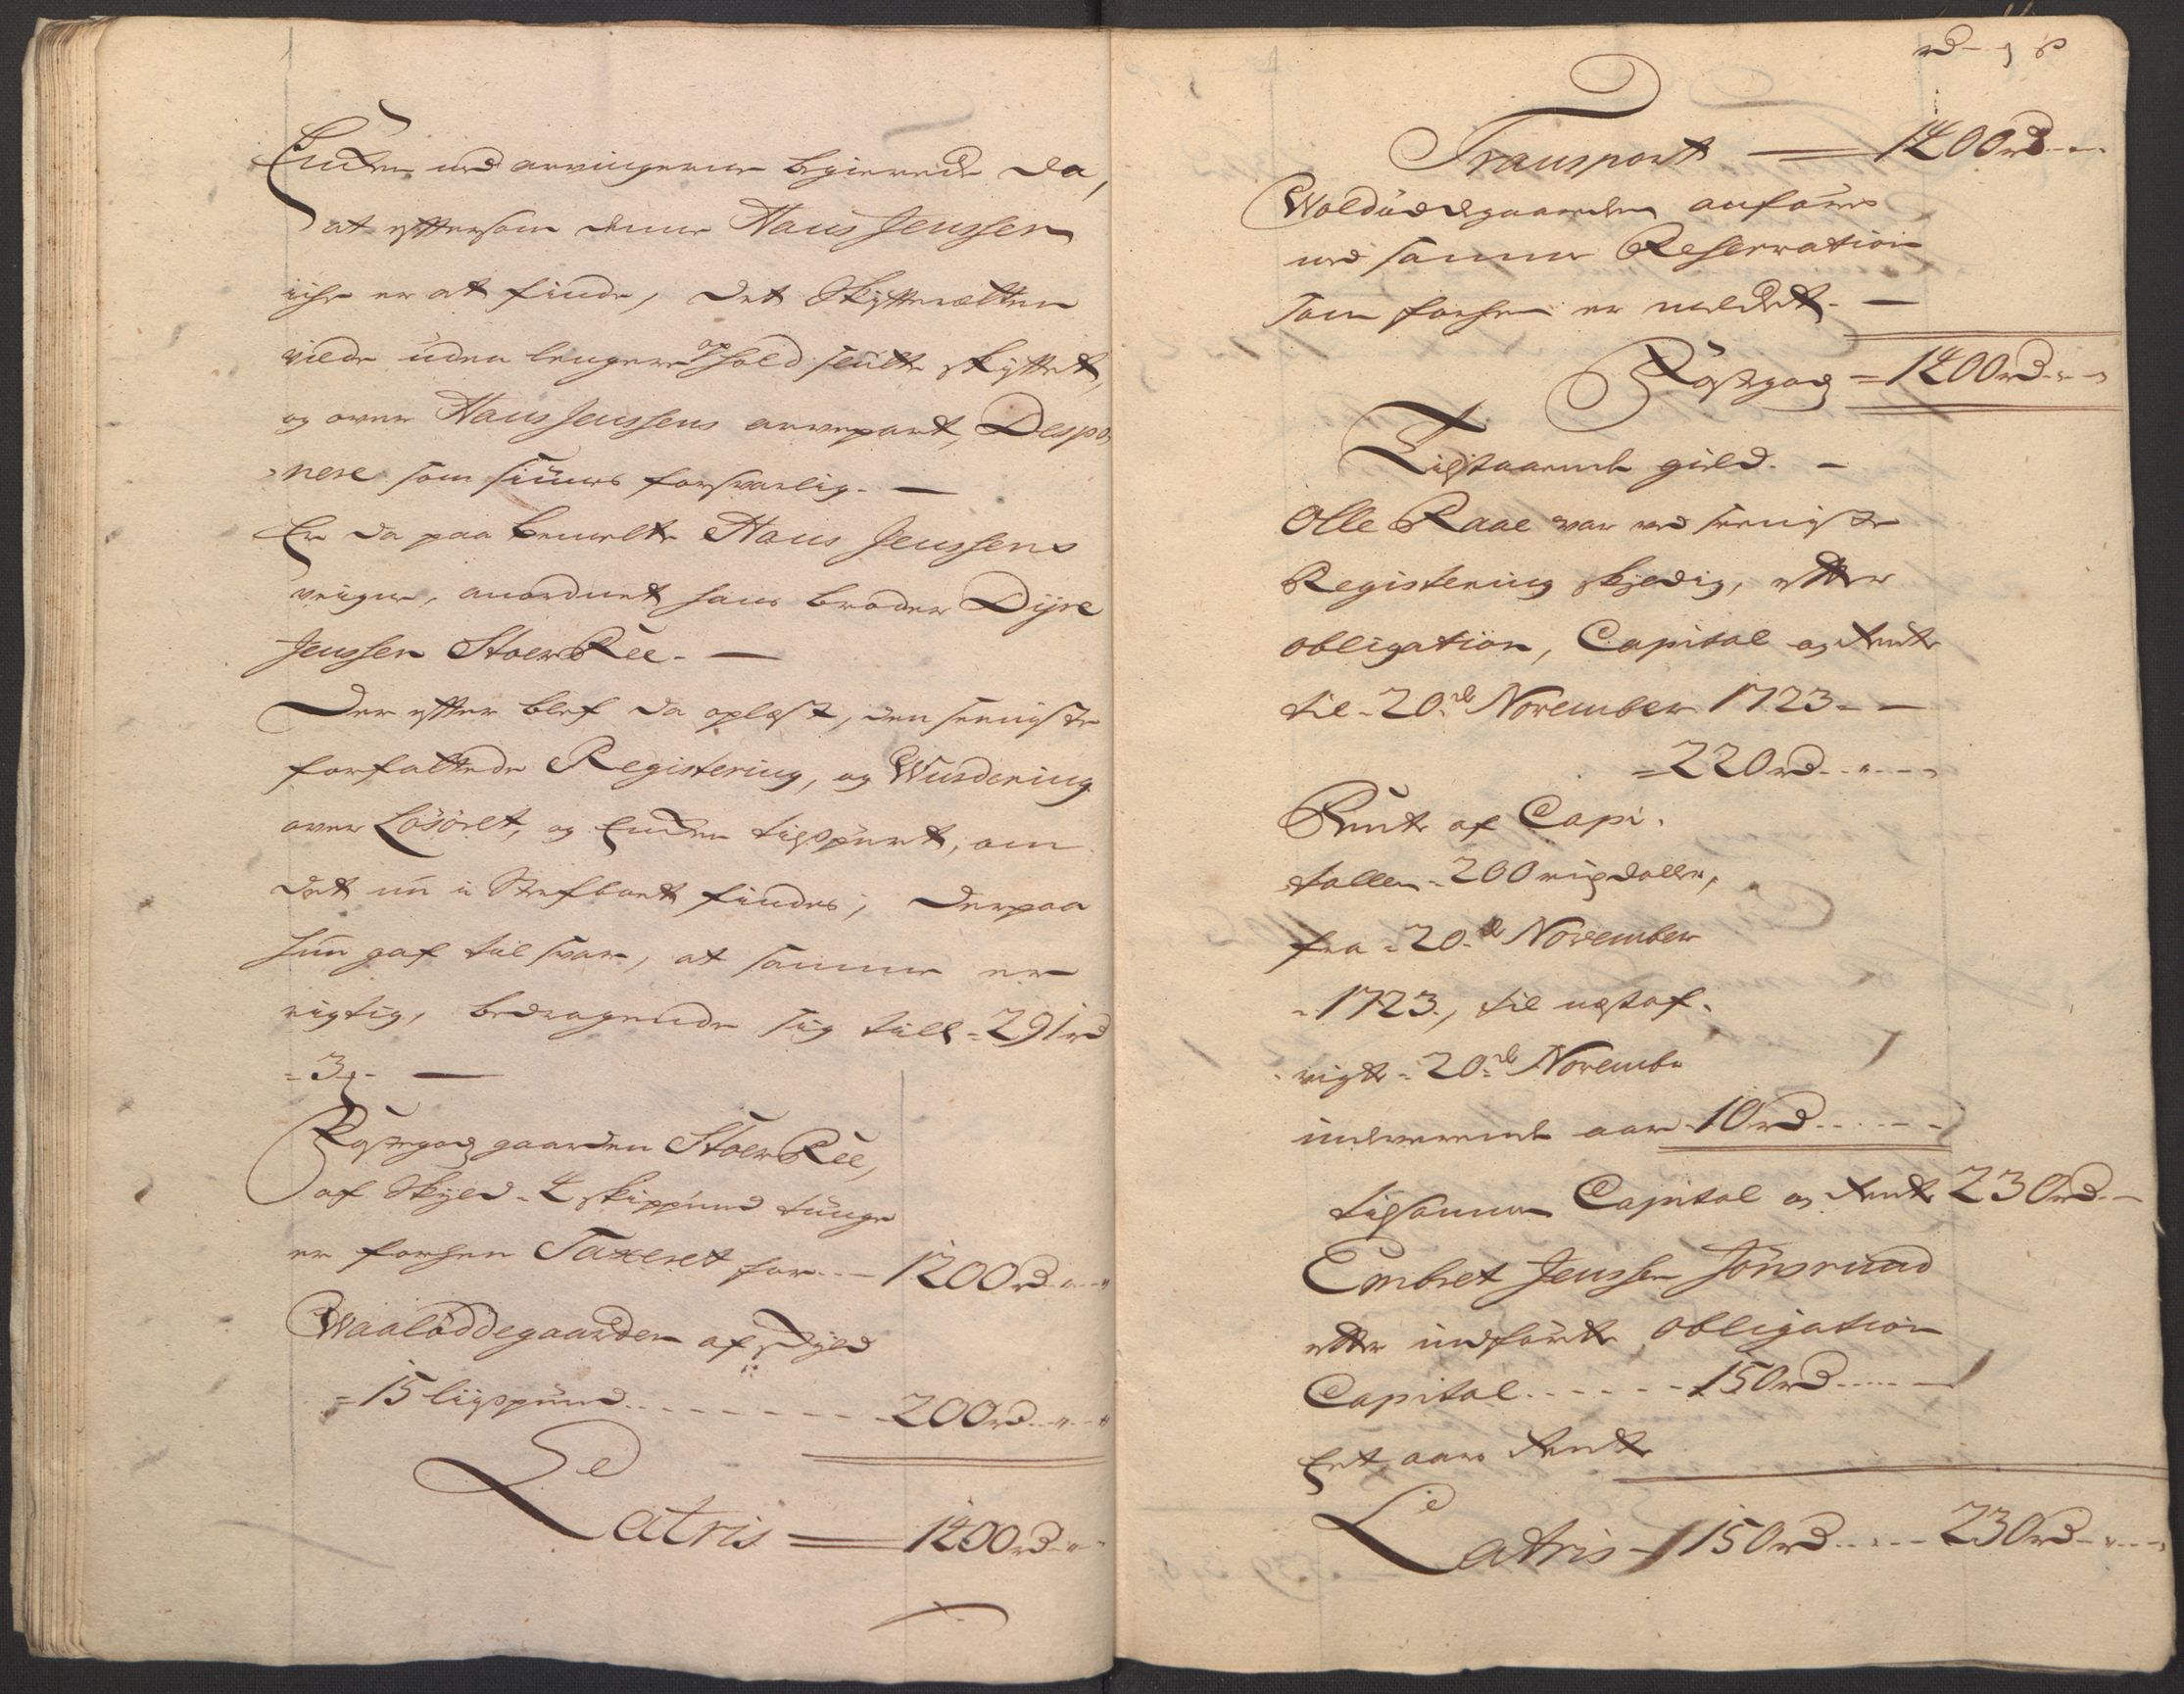 Enken med arvingerne begierede da,
at eftersom denne Hans Jenssen
icke er at finde, det Skifteretten
vilde uden lengere ophold slutte skiftet,
og over Hans Jenssens arvepart, Despo
nere som siunes forsvarlig. —
Er da paa bemelte Hans Jenssens
veigne, anordnet hans broder Dyre
Jenssen Stoer Ree. —
Der efter blef da oplæst, den seeniste
forfattede Registering, og Wurdering
over Løsøret, og Enken tilspurt, om
det nu i Sterfboet findes, derpaa
hun gaf til svar, at samme er
rigtig, bedragende sig till = 291 rd
= 3 —
Jordegods gaarden Stoer Ree,
af Skyld = 4 skippund tunge
er forhen Taxeret for - - - 1200 rd
Waaløddegaarden af skyld
= 15 lispund - - - - - - - 200 rd
Latris = 1400 rd
rd - ß
Transport — 1400 rd
Woldøddegaarden anføres
med samme Reservation
som forhen er meldet. —
Jordegods = 1400 rd
Tilstaaende gield. —
Olle Raae var ved seeniste
Registering skyldig, efter
obligation, Capital og Rente
til = 20de November 1723 - —
= 220 rd
Rente af Capi-
tallen = 200 rigsdaller,
fra = 20de November
= 1723, til nestaf-
vigte = 20de Novembr
indeverende aar - 10 rd
tilsammen Capital og Rente 230 rd
Embret Jenssen Sønsruud
efter indførte obligation
Capital - - - - - - 150 rd
Eet aars Rente
Latris - 150 rd - - - 230 rd